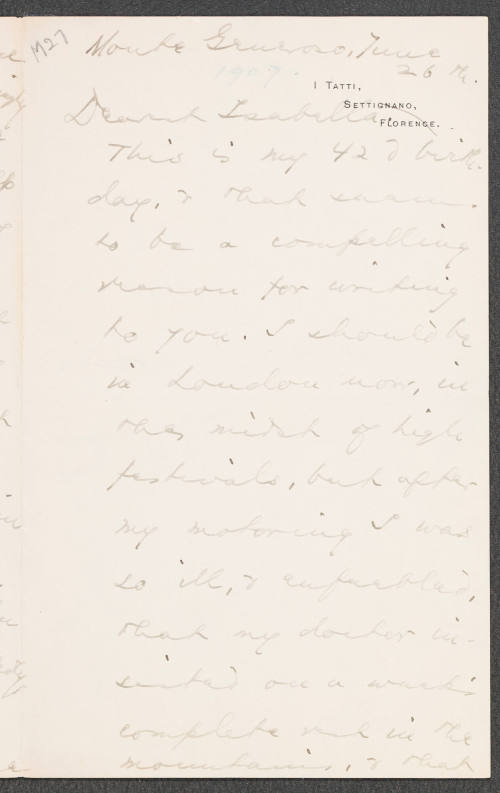 M27
Monte Generoso, June
26th.
1907.
I TATTI,
SETTIGNANO,
FLORENCE.
Dearest Isabella,
This is my 42d birth-
day, & that seems
to be a compelling
reason for writing
to you. I should be
in London now, in
the midst of high
festivals, but after
my motoring I was
so ill, & enfeebled,
that my doctor in-
sisted on a week's
complete rest in the
mountains, & that